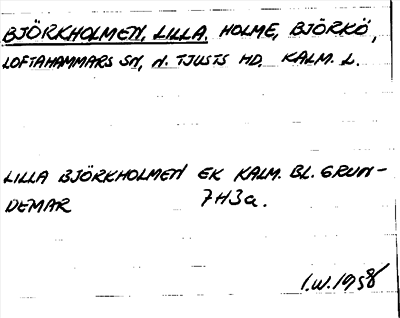 BJÖRKHOLMEN, LILLA. HOLME, BJÖRKÖ,
LOFTAHAMMARS SN, N. TJUSTS HD. KALM. L.
LILLA BJÖRKHOLMEN EK KALM. BL. GRUN-
DEMAR 7H3a.
I.W. 1958